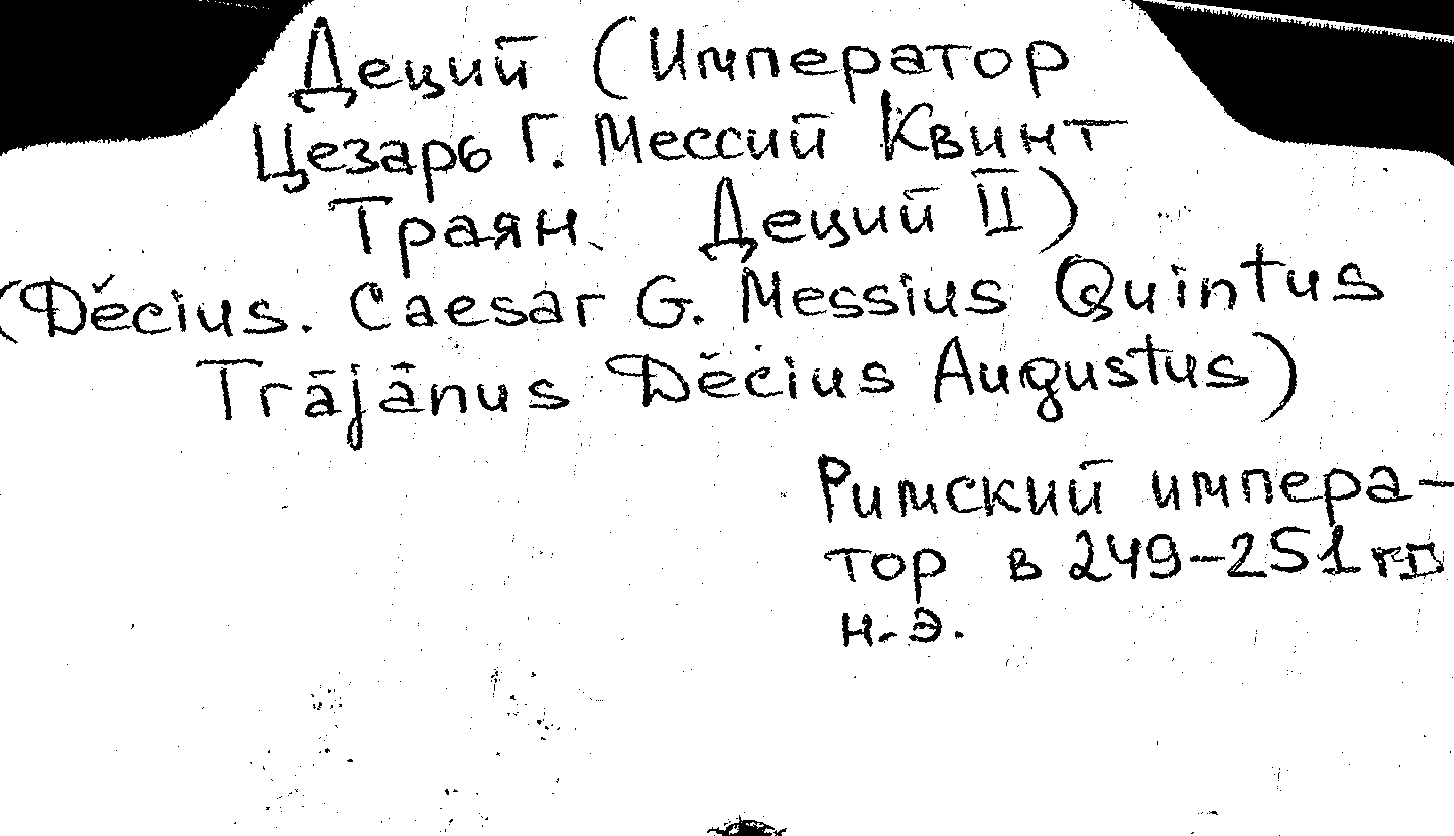 Деций (Император
Цезарь Г. Мессий Квинт
Траян Деций II)
(Dĕcius. Caesar G. Messius Quintus
Trājānus Dĕcius Augustus)
Римский импера-
тор в 249-251 гг
н.э.